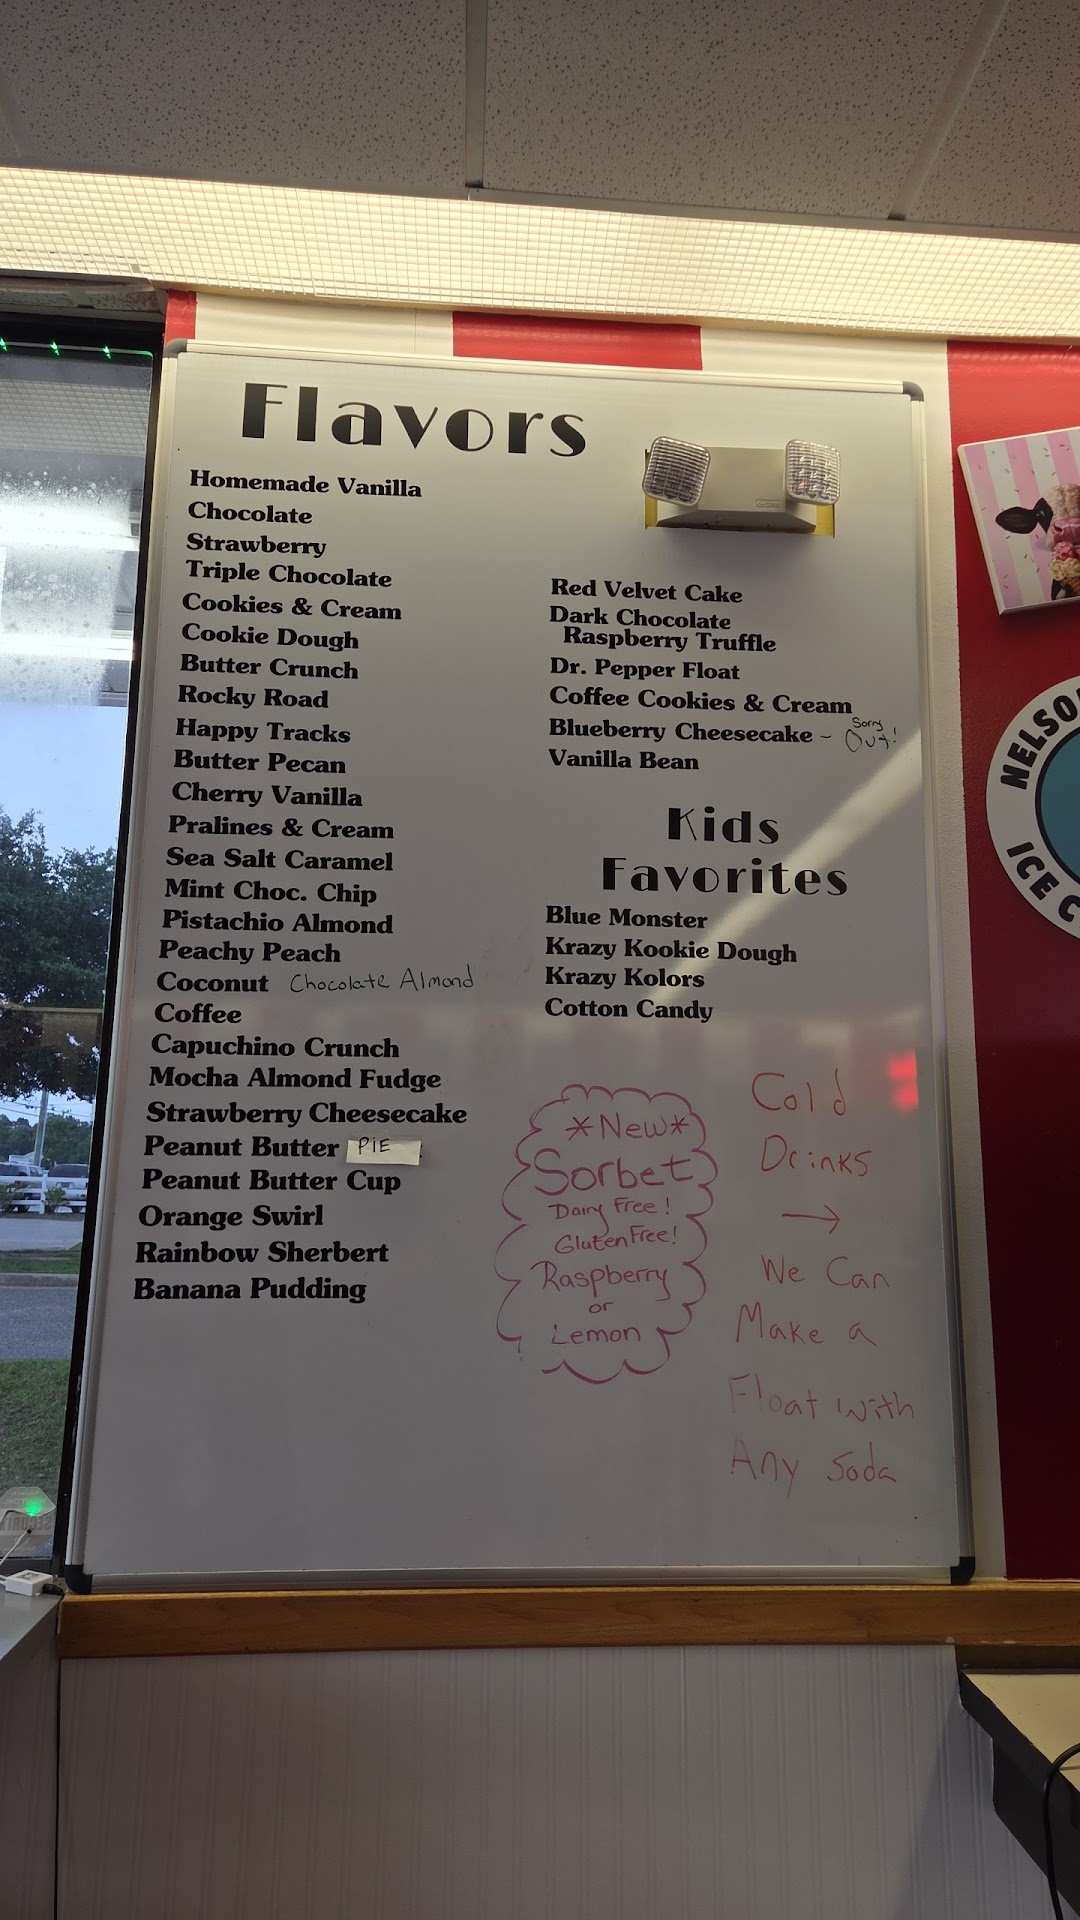 Flavors
Homemade Vanilla
Chocolate
Strawberry
Triple Chocolate
Cookies & Cream
Cookie Dough
Butter Crunch
Rocky Road
Happy Tracks
Butter Pecan
Cherry Vanilla
Pralines & Cream
Sea Salt Caramel
Mint Choc. Chip
Pistachio Almond
Peachy Peach
Coconut Chocolate Almond
Coffee
Capuchino Crunch
Mocha Almond Fudge
Strawberry Cheesecake
Peanut Butter PIE
Peanut Butter Cup
Orange Swirl
Rainbow Sherbert
Banana Pudding
Red Velvet Cake
Dark Chocolate
Raspberry Truffle
Dr. Pepper Float
Coffee Cookies & Cream
Blueberry Cheesecake - Sorry Out!
Vanilla Bean
Kids
Favorites
Blue Monster
Krazy Kookie Dough
Krazy Kolors
Cotton Candy
*New*
Sorbet
Dairy Free!
Gluten Free!
Raspberry
or
Lemon
Cold
Drinks
→
We Can
Make a
Float with
Any Soda
NELSO
ICE C